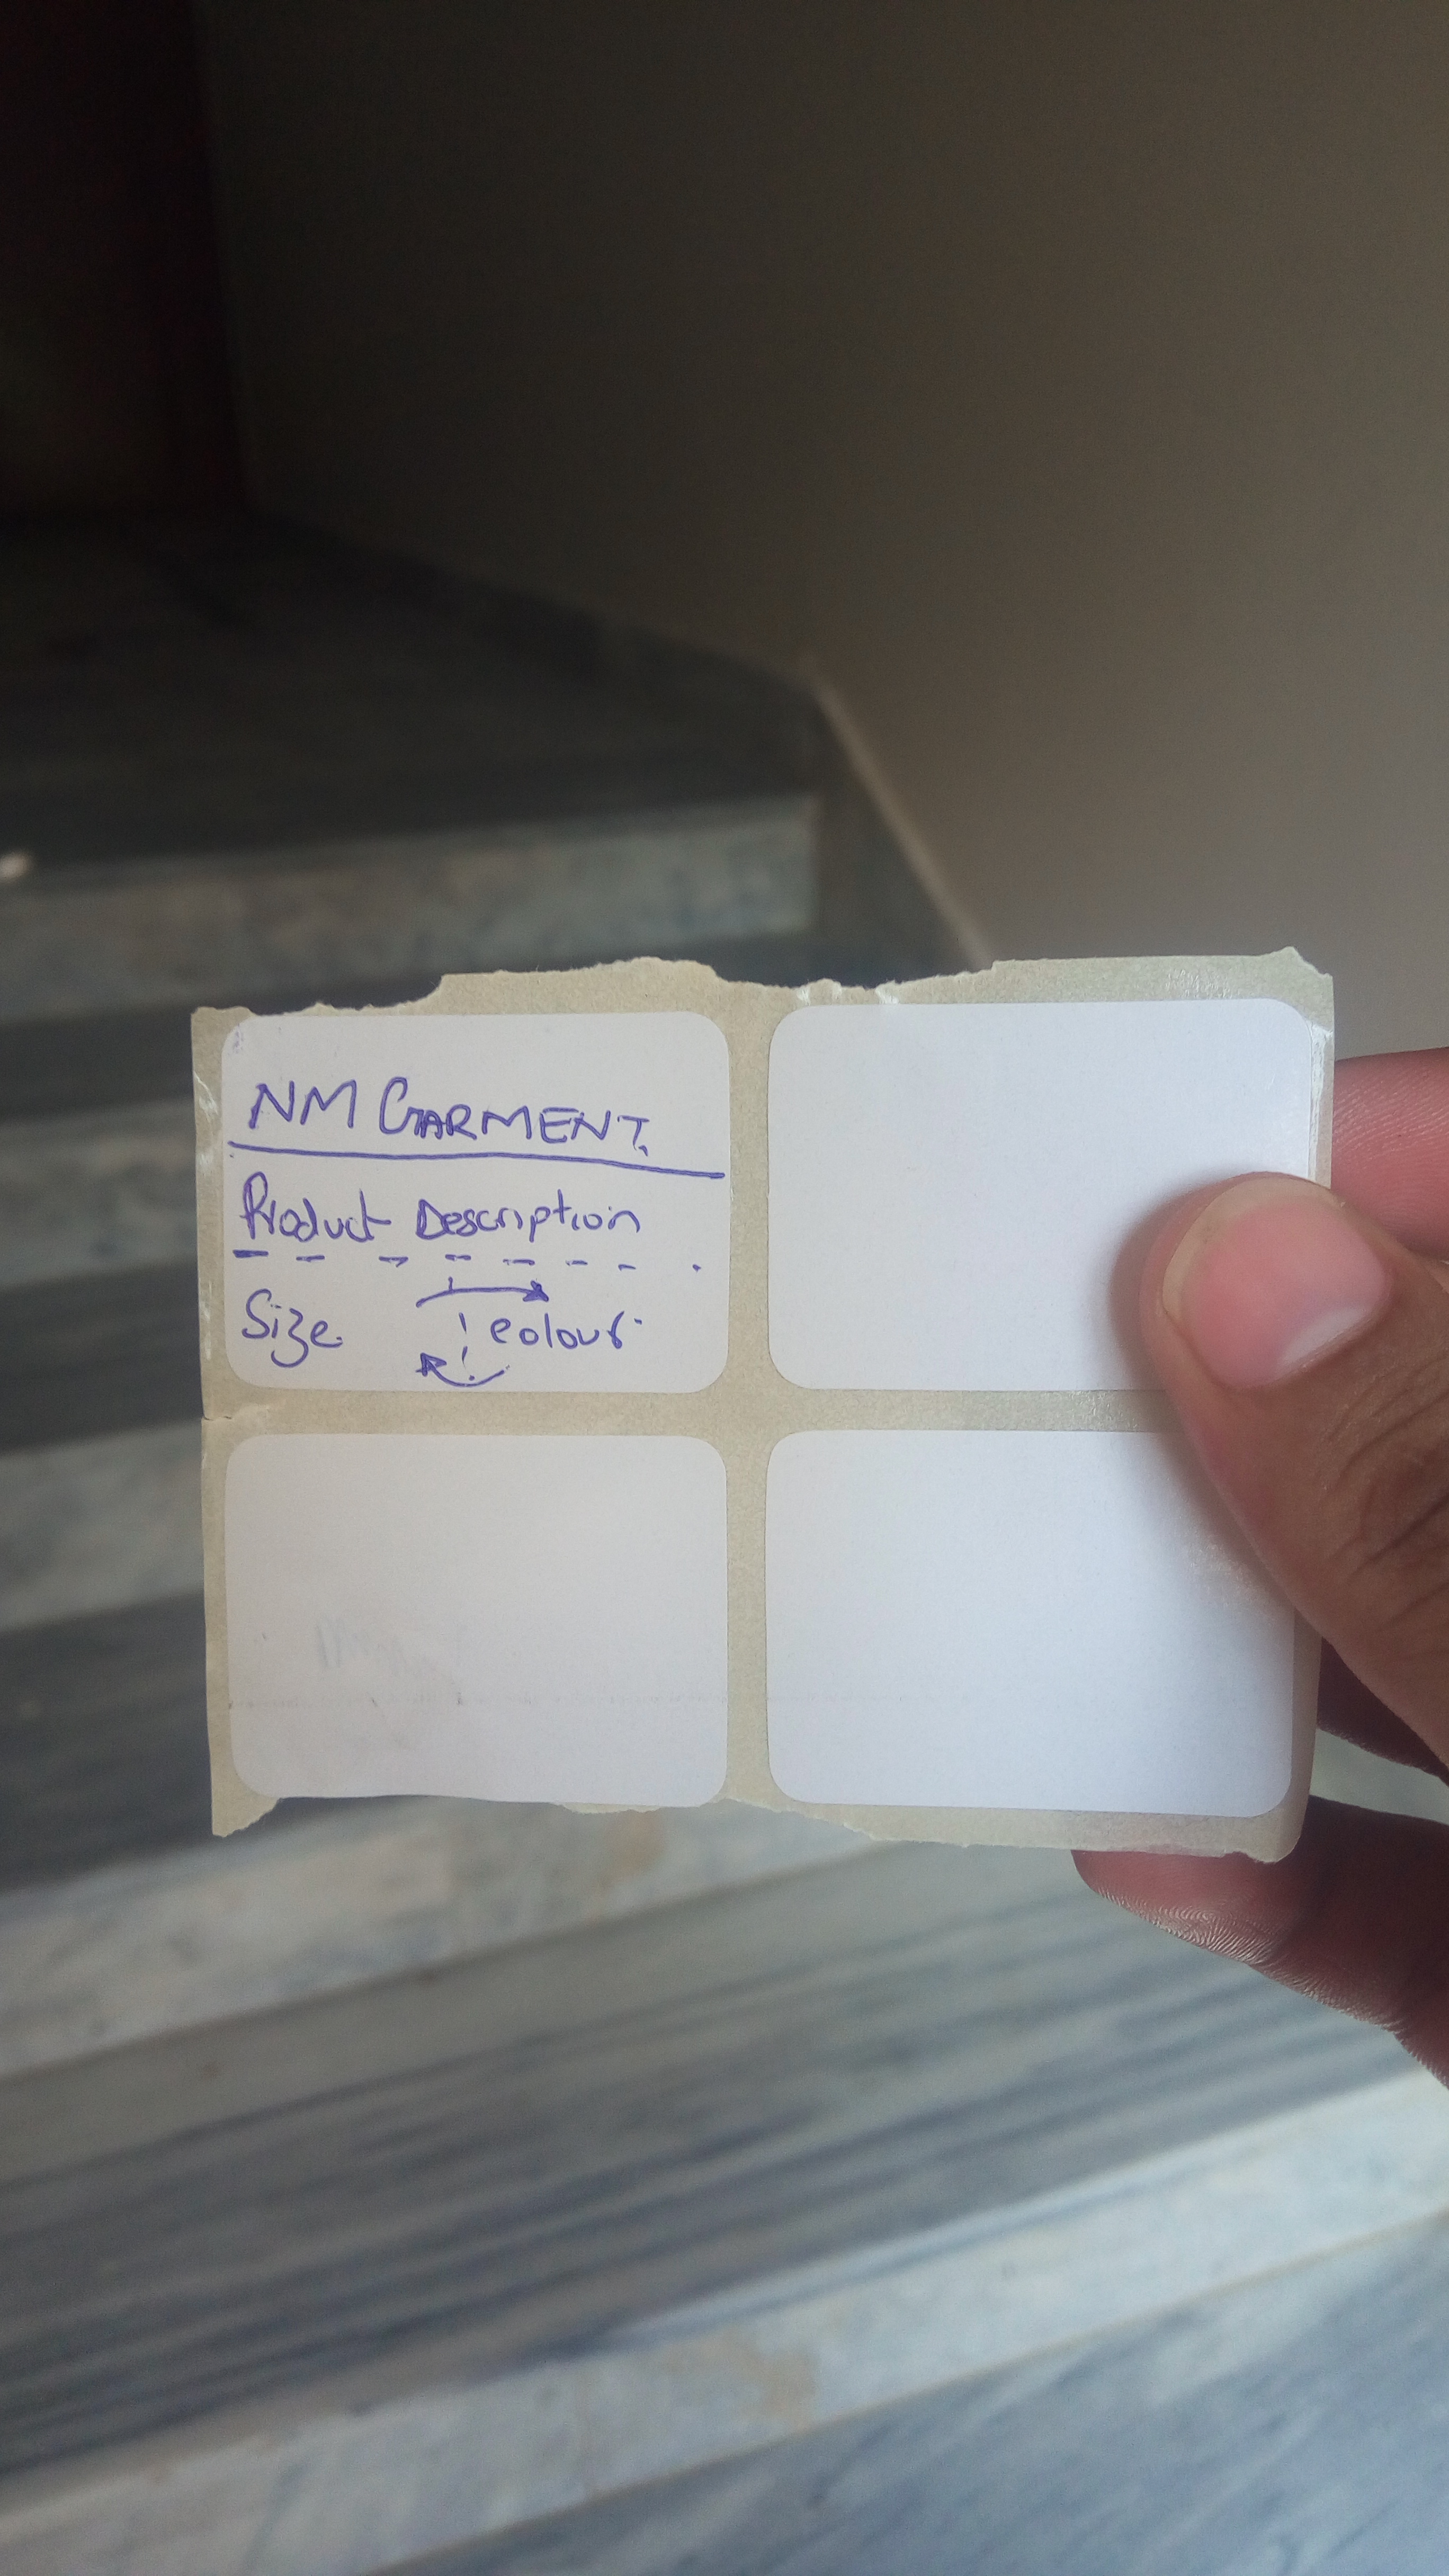 NM GARMENT.
Product Description
Size colour